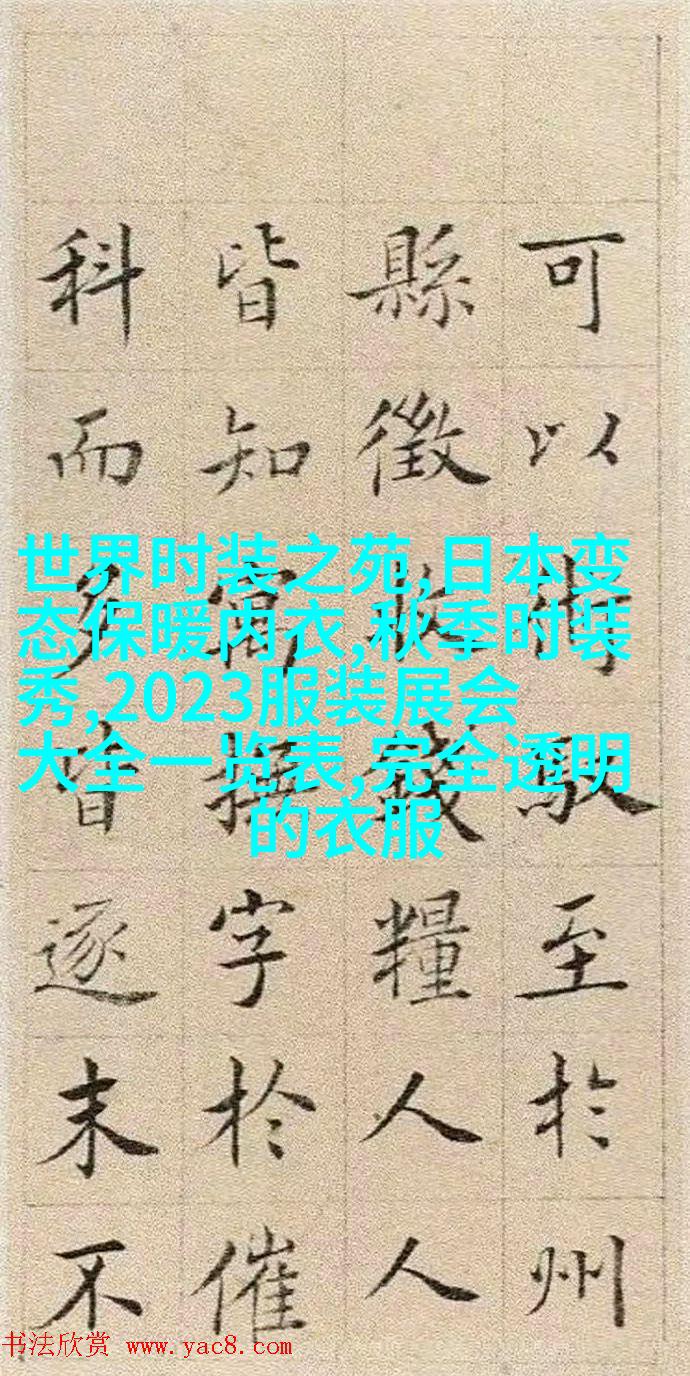 可以術馭至於州
縣徵收錢糧人人
皆知寓撫字於催
科而皆逐末不
世界时装之苑,日本变
态保暖内衣,秋季时装
秀,2023服装展会
大全一览表,完全透明
的衣服
书法欣赏 www.yac8.com